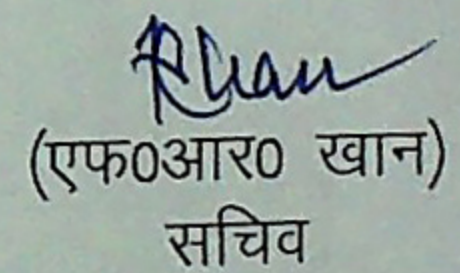 RKhan
(एफ0आर0 खान)
सचिव